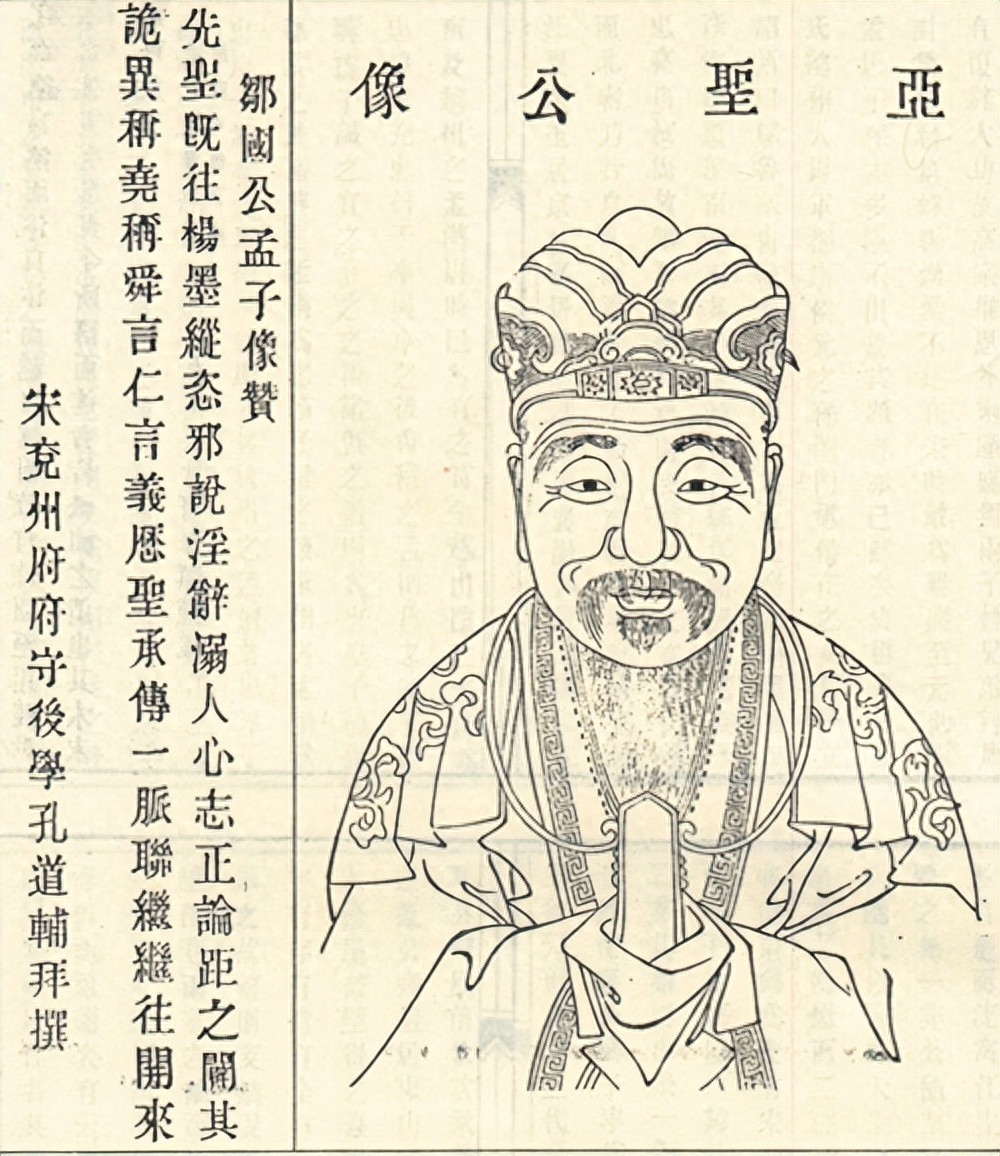 亞聖公像
鄒國公孟子像贊
先聖既往楊墨縱恣邪說淫辭溺人心志正論距之闢其
詭異稱堯稱舜言仁言義歷聖承傳一脈聯繼繼往開來
宋兗州府府守後學孔道輔拜撰